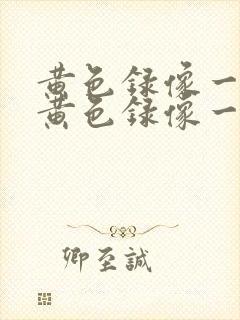 黄色录像一
黄色录像一
卿至誠